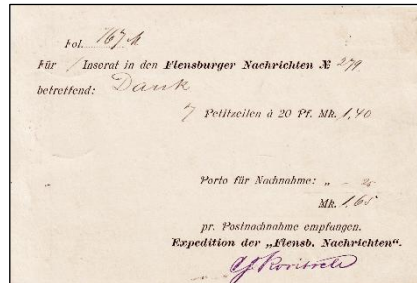 Fol. 767 A.
Für 1 Inserat in den Flensburger Nachrichten № 279
betreffend: Dank
7 Petitzeilen à 20 Pf. Mk. 1,40
Porto für Nachnahme: „ - 25
Mk. 1,65
pr. Postnachnahme empfangen.
Expedition der „Flensb. Nachrichten“.